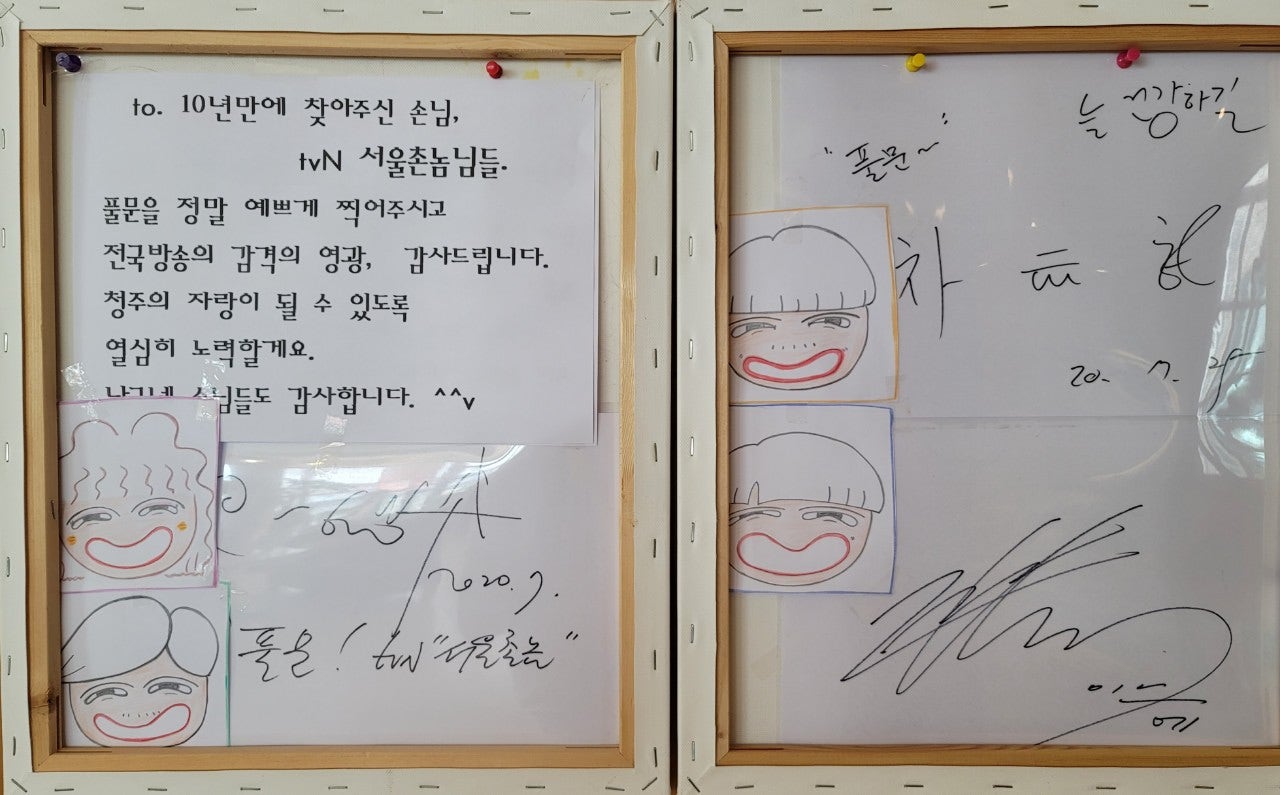 to. 10년만에 찾아주신 손님,
tvN 서울촌놈님들.
풀문을 정말 예쁘게 찍어주시고
전국방송의 감격의 영광, 감사드립니다.
청주의 자랑이 될 수 있도록
열심히 노력할게요.
손님들도 감사합니다. ^^v
2020. 7.
풀문! tvN "서울촌놈"
늘 건강하길
"풀문~"
차 태 현
20. 7. 25